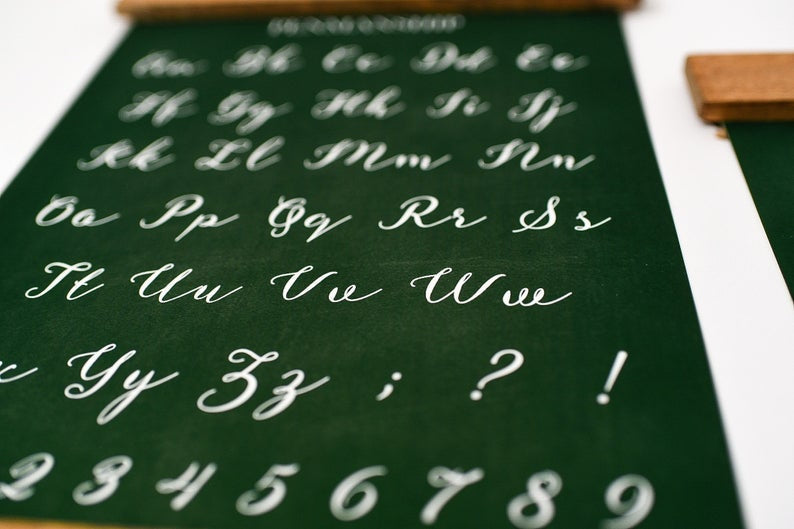 PENMANSHIP
Aa Bb Cc Dd Ee
Ff Gg Hh Ii Jj
Kk Ll Mm Nn
Oo Pp Qq Rr Ss
Tt Uu Vv Ww
x Yy Zz ; ? !
2 3 4 5 6 7 8 9